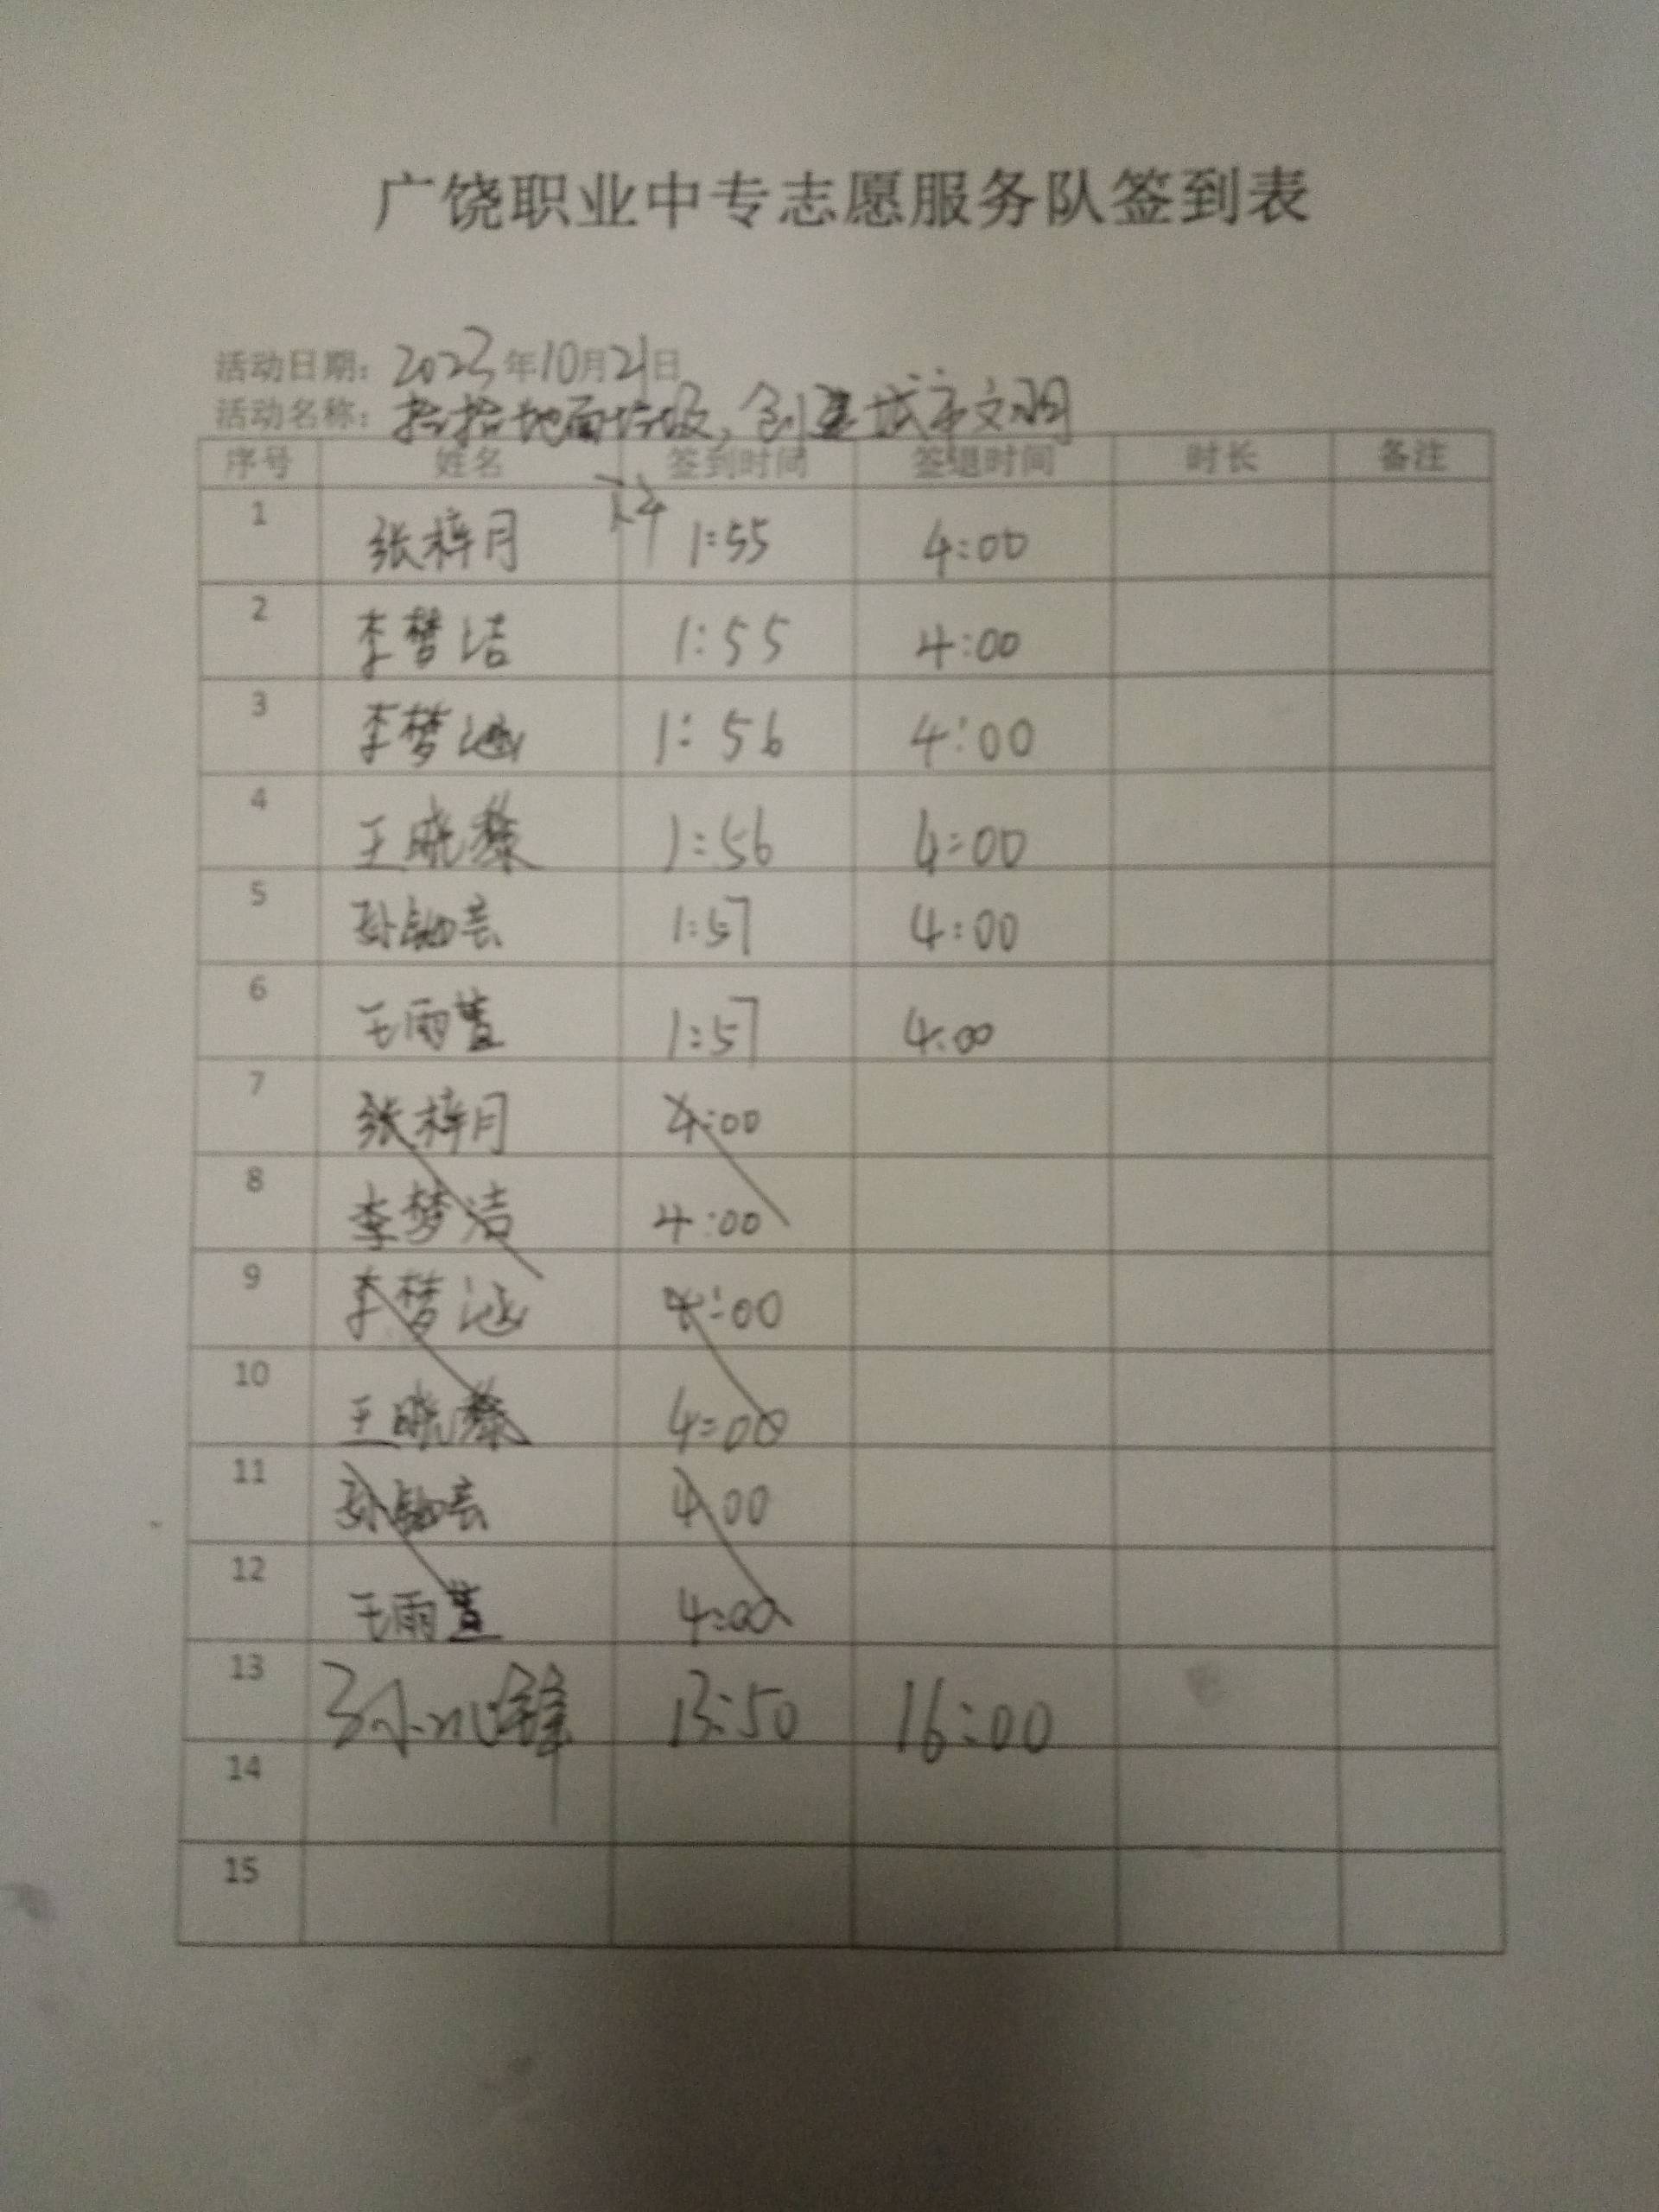 广饶职业中专志愿服务队签到表
活动日期：2023年10月21日
活动名称：捡捡地面垃圾，创建城市文明
序号 姓名 签到时间 签退时间 时长 备注
下午
1 张梓月 1:55 4:00
2 李梦洁 1:55 4:00
3 李梦涵 1:56 4:00
4 王晓 1:56 4:00
5 孙 1:57 4:00
6 王雨萱 1:57 4:00
7 张梓月 4:00
8 李梦洁 4:00
9 李梦涵 4:00
10 王晓 4:00
11 孙 4:00
12 王雨萱 4:00
13 孙 13:50 16:00
14
15